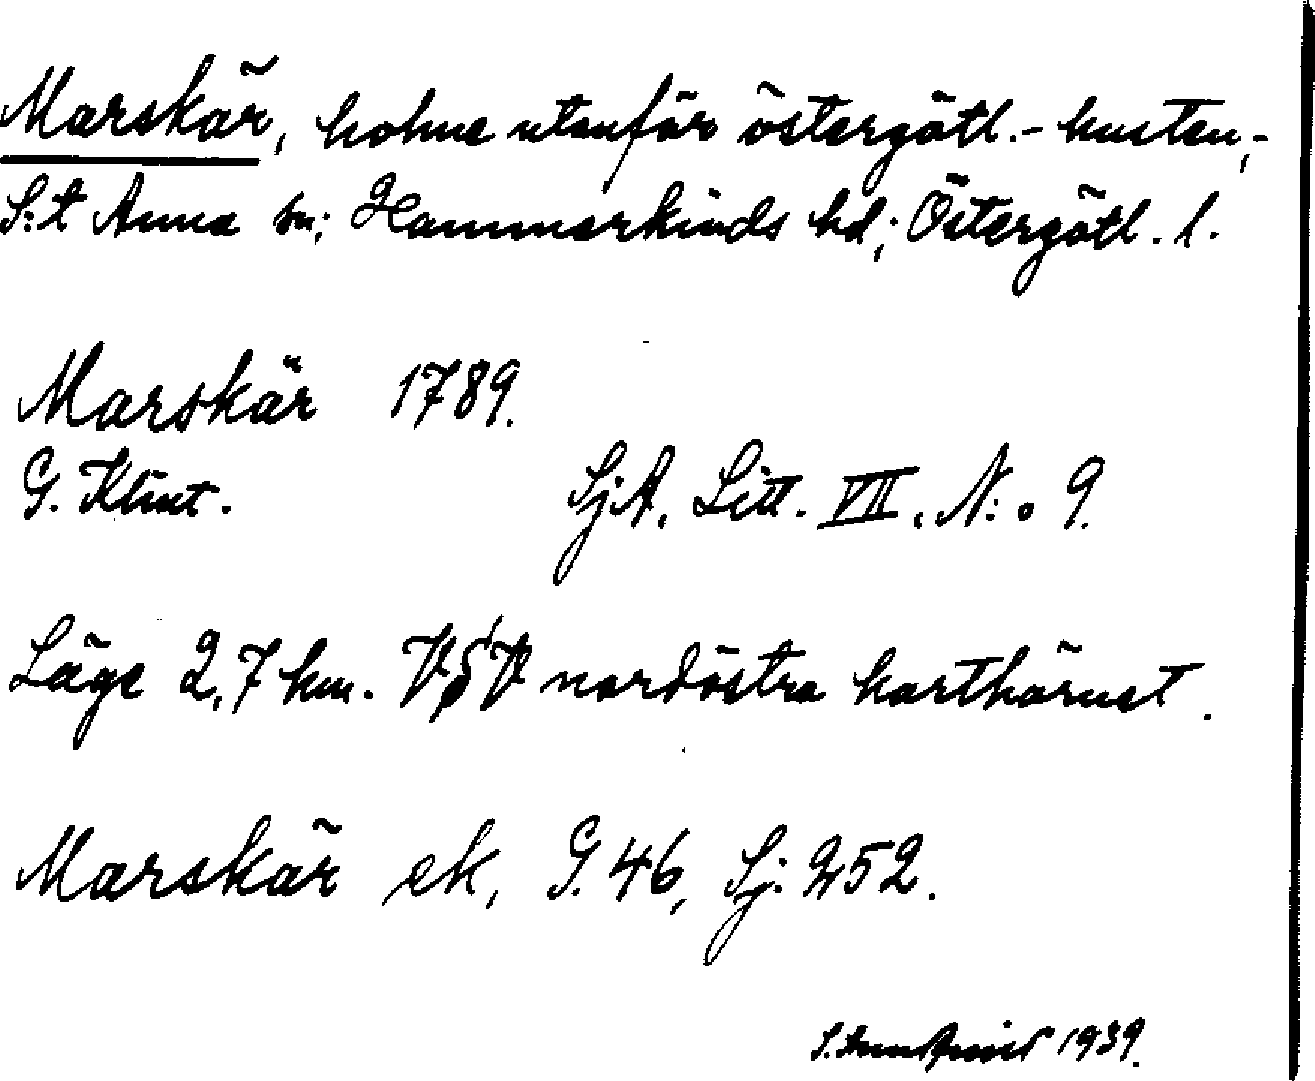 Marskär, holme utanför östergötl.-kusten,-
S:t Anna sn; Hammarkinds hd; Östergötl. l.
Marskär 1789.
G. Klint. SjA. Litt. VII. N:o 9.
Läge 2,7 km. VSV nordöstra karthörnet.
Marskär ek, G. 46, Sj. 252.
1939.